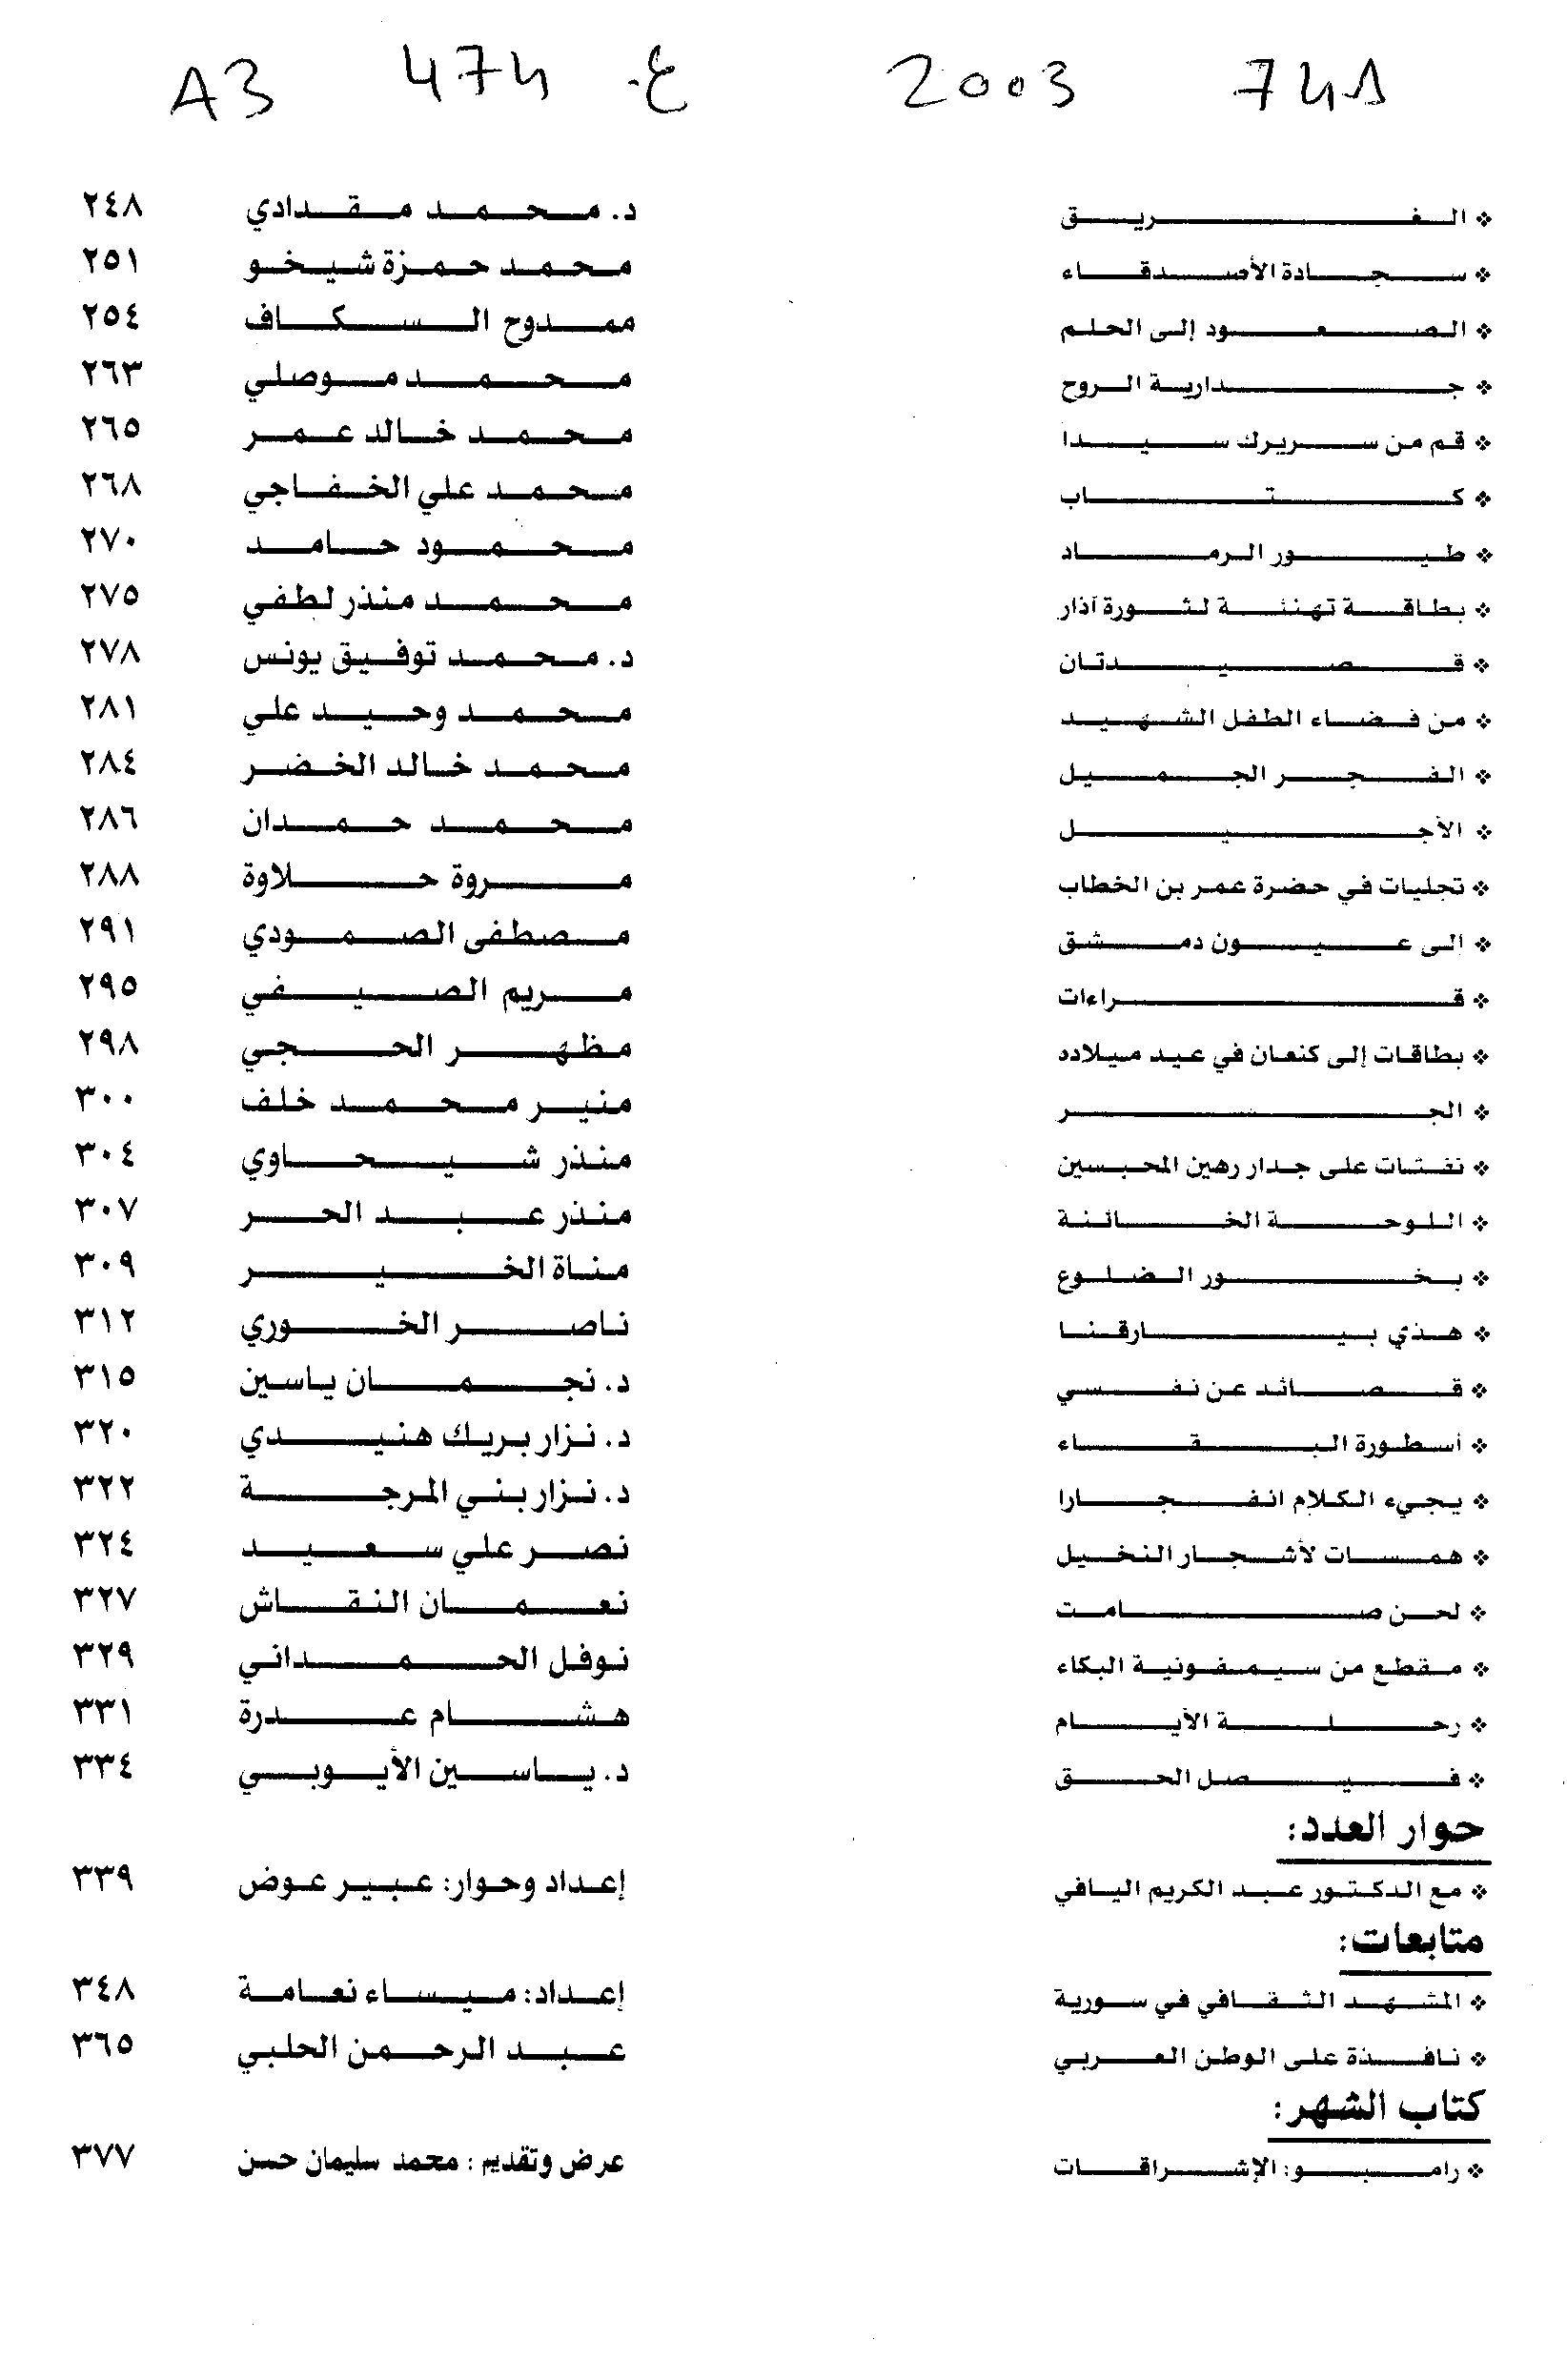 A3 474 ع. 2003 741
❖ الغريق د. محمد مقدادي ٢٤٨
❖ سجادة الأصدقاء محمد حمزة شيخو ٢٥١
❖ الصعود إلى الحلم ممدوح السكاف ٢٥٤
❖ جدارية الروح محمد موصلي ٢٦٣
❖ قم من سريرك سيدا محمد خالد عمر ٢٦٥
❖ كتاب محمد علي الخفاجي ٢٦٨
❖ طيور الرماد محمود حامد ٢٧٠
❖ بطاقة تهنئة لثورة آذار محمد منذر لطفي ٢٧٥
❖ قصيدتان د. محمد توفيق يونس ٢٧٨
❖ من فضاء الطفل الشهيد محمد وحيد علي ٢٨١
❖ الفجر الجميل محمد خالد الخضر ٢٨٤
❖ الأجيل محمد حمدان ٢٨٦
❖ تجليات في حضرة عمر بن الخطاب مروة حلاوة ٢٨٨
❖ إلى عيون دمشق مصطفى الصمودي ٢٩١
❖ قراءات مريم الصيفي ٢٩٥
❖ بطاقات إلى كنعان في عيد ميلاده مظهر الحجي ٢٩٨
❖ الجر منير محمد خلف ٣٠٠
❖ نفثات على جدار رهين المحبسين منذر شيحاوي ٣٠٤
❖ اللوحة الخائنة منذر عبد الحر ٣٠٧
❖ بخور الضلوع مناة الخير ٣٠٩
❖ هذي بيارقنا ناصر الخوري ٣١٢
❖ قصائد عن نفسي د. نجمان ياسين ٣١٥
❖ أسطورة البقاء د. نزار بريك هنيدي ٣٢٠
❖ يجيء الكلام انفجارا د. نزار بني المرجة ٣٢٢
❖ همسات لأشجار النخيل نصر علي سعيد ٣٢٤
❖ لحن صامت نعمان النقاش ٣٢٧
❖ مقطع من سيمفونية البكاء نوفل الحمداني ٣٢٩
❖ رحلة الأيام هشام عدرة ٣٣١
❖ فيصل الحق د. ياسين الأيوبي ٣٣٤
حوار العدد:
❖ مع الدكتور عبد الكريم اليافي إعداد وحوار: عبير عوض ٣٣٩
متابعات:
❖ المشهد الثقافي في سورية إعداد: ميساء نعامة ٣٤٨
❖ نافذة على الوطن العربي عبد الرحمن الحلبي ٣٦٥
كتاب الشهر:
❖ رامبو: الإشراقات عرض وتقديم: محمد سليمان حسن ٣٧٧